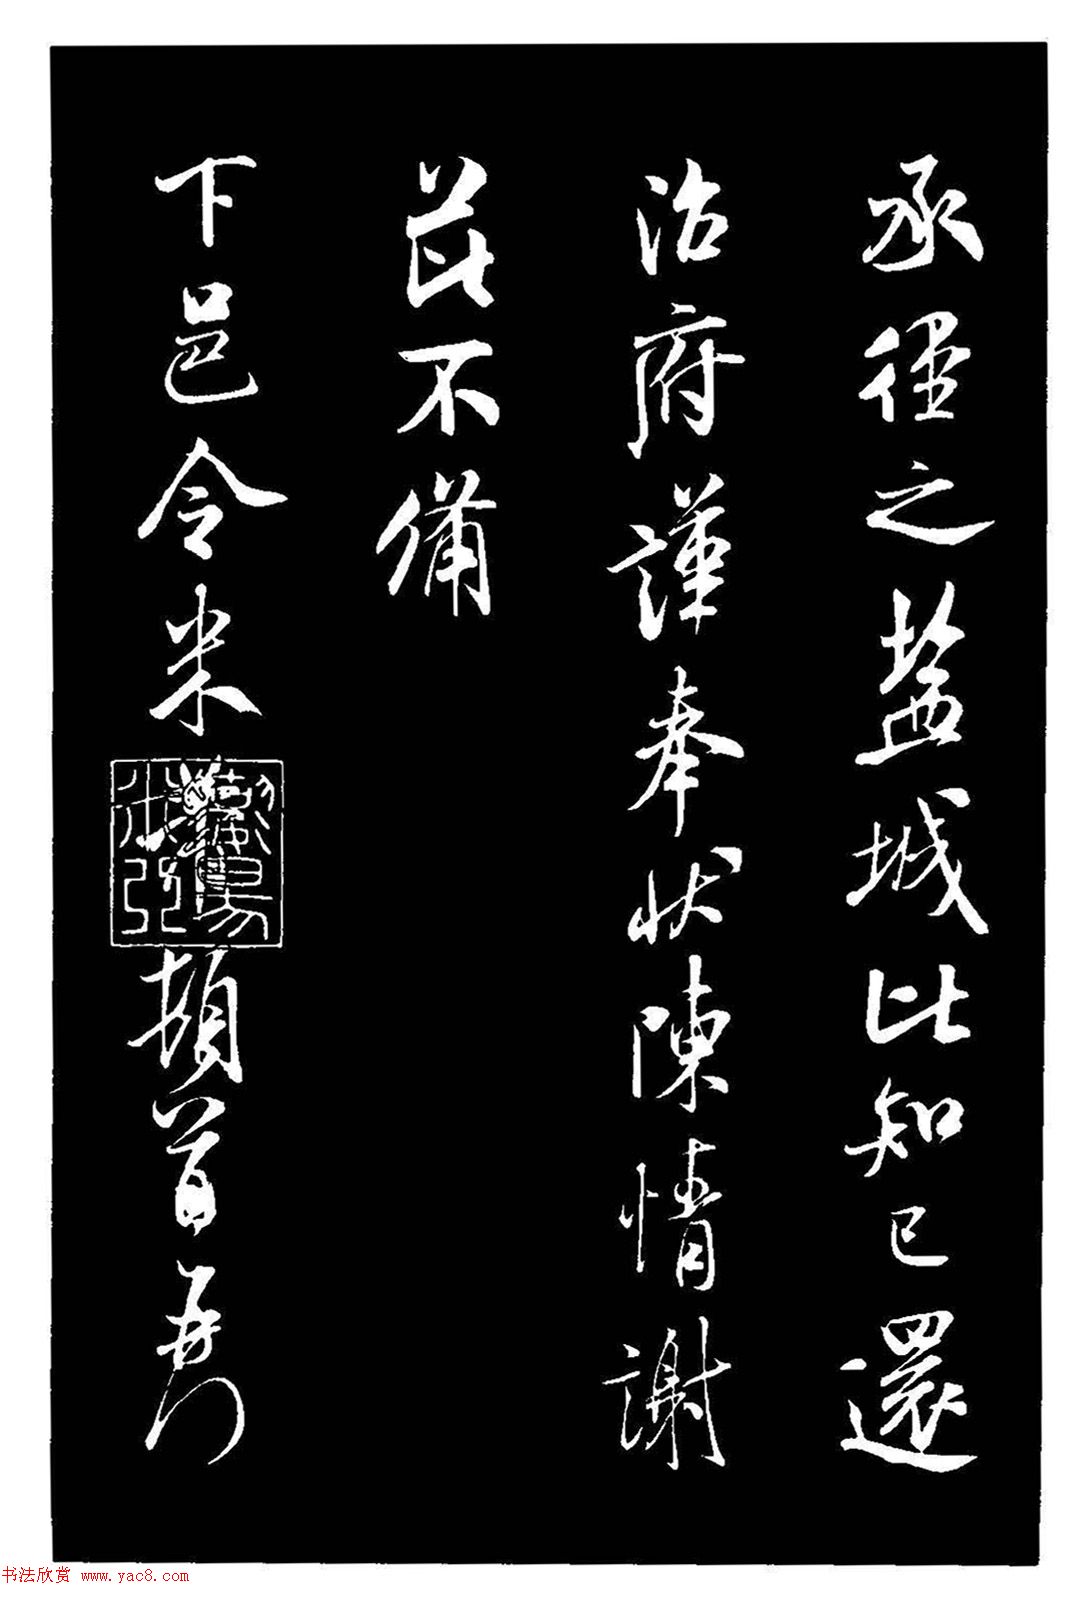 承徑之鹽城比知已還
治府謹奉狀陳情謝
茲不備
下邑令米
頓首再拜
书法欣赏 www.yac8.com